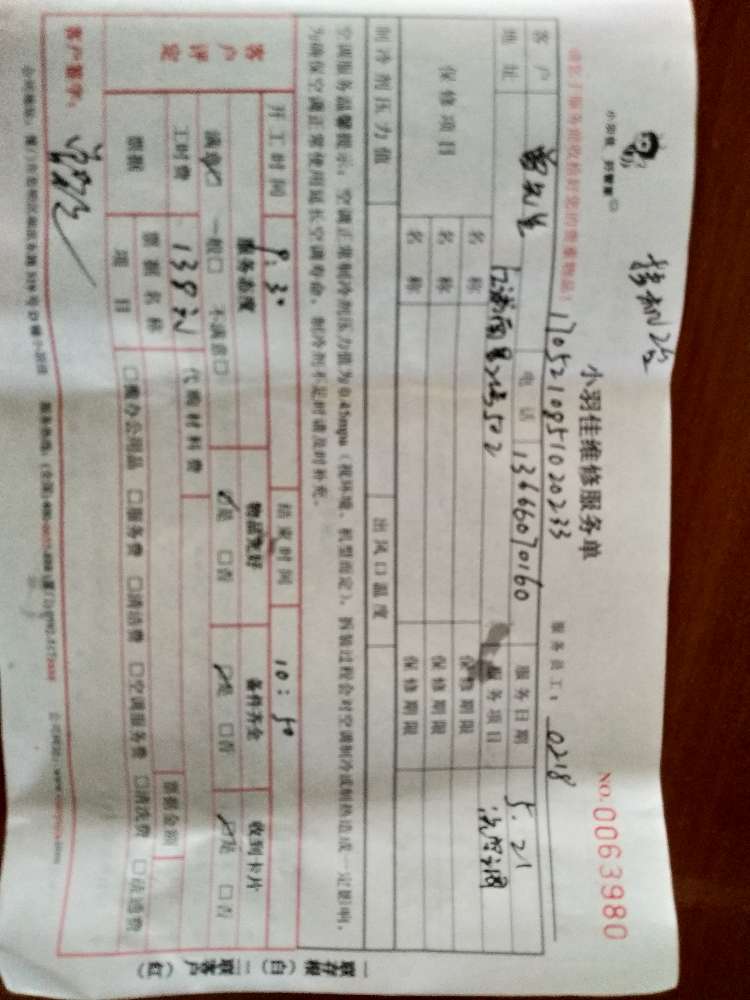 小羽佳维修服务单
NO.0063980
请您于服务前收检好您的贵重物品!
1705210851020233
服务员工: 0218
客户 曾先生 电话 13666070160 服务日期 5.21
地址 502 服务项目 洗空调
保修项目 名称 保修期限
名称 保修期限
名称 保修期限
制冷剂压力值 出风口温度
空调服务温馨提示: 空调正常制冷剂压力值为0.45mpa (视环境、机型而定), 拆装过程会对空调制冷或制热造成一定影响,
为确保空调正常使用延长空调寿命, 制冷剂不足时请及时补充。
开工时间 9:30 结束时间 10:50
客户评定 服务态度 物品完好 备件齐全 收到卡片
满意☑ 一般□ 不满意□ ☑是 □否 ☑是 □否 ☑是 □否
工时费 138元 代购材料费
票据 票据名称 票据金额
项目 □办公用品 □服务费 □清洁费 □空调服务费 □清洗费 □交通费
客户签字:
一联存根(白) 二联客户(红)